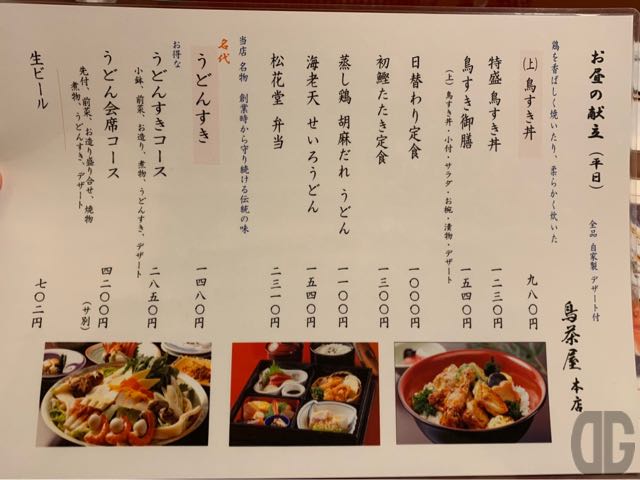 お昼の献立（平日）
全品 自家製 デザート付
鳥茶屋 本店
鶏を香ばしく焼いたり、柔らかく炊いた
(上) 鳥すき丼 九八〇円
特盛 鳥すき丼 一二三〇円
鳥すき御膳 一五四〇円
（上）鳥すき丼・小付・サラダ・お椀・漬物・デザート
日替わり定食 一〇〇〇円
初鰹たたき定食 一三〇〇円
蒸し鶏 胡麻だれ うどん 一一〇〇円
海老天 せいろうどん 一五四〇円
松花堂 弁当 二三一〇円
当店 名物 創業時から守り続ける伝統の味
名代
うどんすき 一四八〇円
お得な
うどんすきコース 二八五〇円
小鉢、前菜、お造り、煮物、うどんすき、デザート
うどん会席コース 四二〇〇円（サ別）
先付、前菜、お造り盛り合せ、焼物
煮物、うどんすき、デザート
生ビール 七〇二円
DG